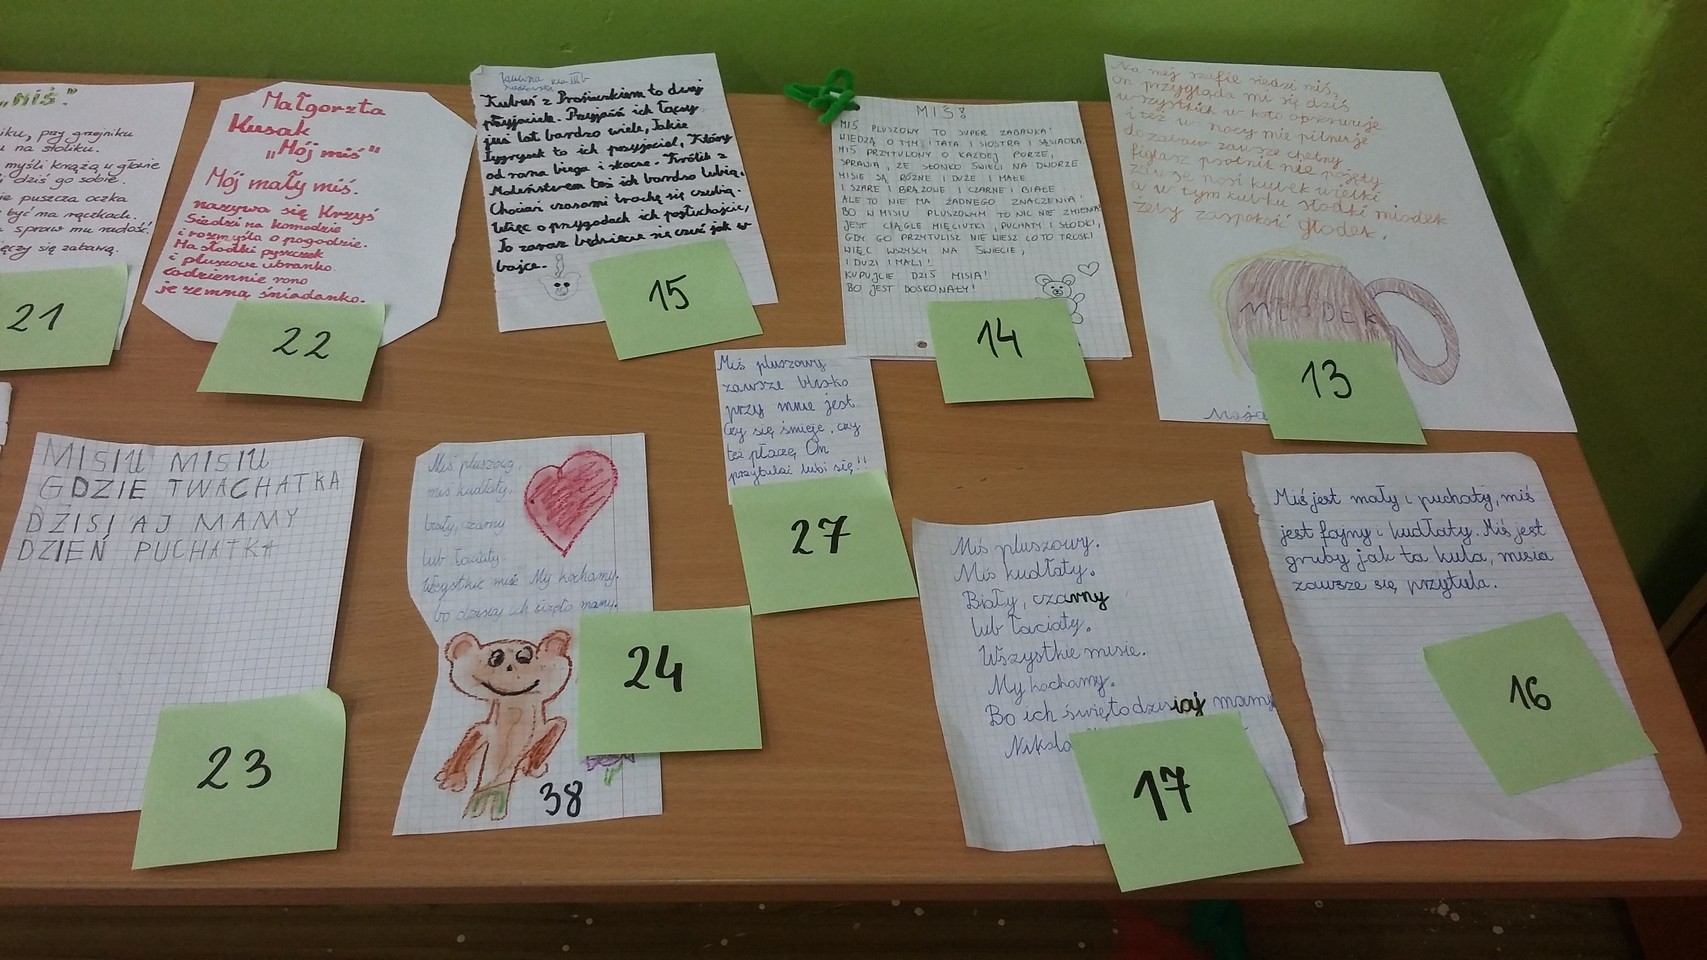 „MIŚ."
iku, przy grzejniku
u na stoliku.
myśli krążą u głowie
i dziś go sobie.
ie puszcza oczka
być ma rączkach.
spraw mu radość!!
ęczy się zabawą.
21
Małgorzta
Kusak
„Mój miś"
Mój mały miś.
nazywa się Krzyś
Siedzi na komodzie
i rozmyśla o pogodzie.
Ma słodki pyszczek
i pluszowe ubranko.
Codziennie rano
je zemną śniadanko.
22
kla III b
Kubuś z Prosiaczkiem to dwaj
przyjaciele. Przyjaźń ich łączy
już lat bardzo wiele, Także
Tygrysek to ich przyjaciel, Który
od rana biega i skacze. Królik z
Maleństwem też ich bardzo lubią.
Chociaż czasami trochę się czubią.
Więc o przygodach ich posłuchajcie,
To zaraz będziecie się czuć jak w
bajce.
15
MIŚ!
MIŚ PLUSZOWY TO SUPER ZABAWKA!
WIEDZĄ O TYM I TATA I SIOSTRA I SĄSIADKA.
MIŚ PRZYTULONY O KAŻDEJ PORZE,
SPRAWIA, ŻE SŁOŃCO ŚWIECI NA DWORZE.
MISIE SĄ RÓŻNE I DUŻE I MAŁE
I SZARE I BRĄZOWE I CZARNE I BIAŁE
ALE TO NIE MA ŻADNEGO ZNACZENIA!
BO W MISIU PLUSZOWYM TO NIC NIE ZMIENIA!
JEST CIĄGLE MIĘCIUTKI, PUCHATY I SŁODKI,
GDY GO PRZYTULISZ NIE WIESZ CO TO TROSKI
WIĘC WSZYSCY NA ŚWIECIE,
I DUZI I MALI!
KUPUJCIE DZIŚ MISIA!
BO JEST DOSKONAŁY!
14
Na mej szafie siedzi miś,
on przygląda mi się dziś
wszystkich w koło obserwuje
i też w nocy mie pilnuje
do zabaw zawsze chętny
figlarz psotnik nie pojęty
zawsze nosi kubek wielki
a w tym kubku słodki miodek
żeby zaspokoić głodek.
MIODEK
Maja
13
MISIU MISIU
GDZIE TWACHATKA
DZISIAJ MAMY
DZIEŃ PUCHATKA
23
Miś pluszowy,
miś kudłaty,
biały, czarny
lub łaciaty.
Wszystkie misie My kochamy.
bo dzisiaj ich święto mamy.
24
38
Miś pluszowy
zawsze blisko
przy mnie jest
Czy się śmieje, czy
też płaczę, On
przytulać lubi się!!
27
Miś pluszowy.
Miś kudłaty.
Biały, czarny
lub łaciaty.
Wszystkie misie.
My kochamy.
Bo ich święto dzisiaj mamy
Nikola
17
Miś jest mały i puchaty, miś
jest fajny i kudłaty. Miś jest
gruby jak ta kula, misia
zawsze się przytula.
16